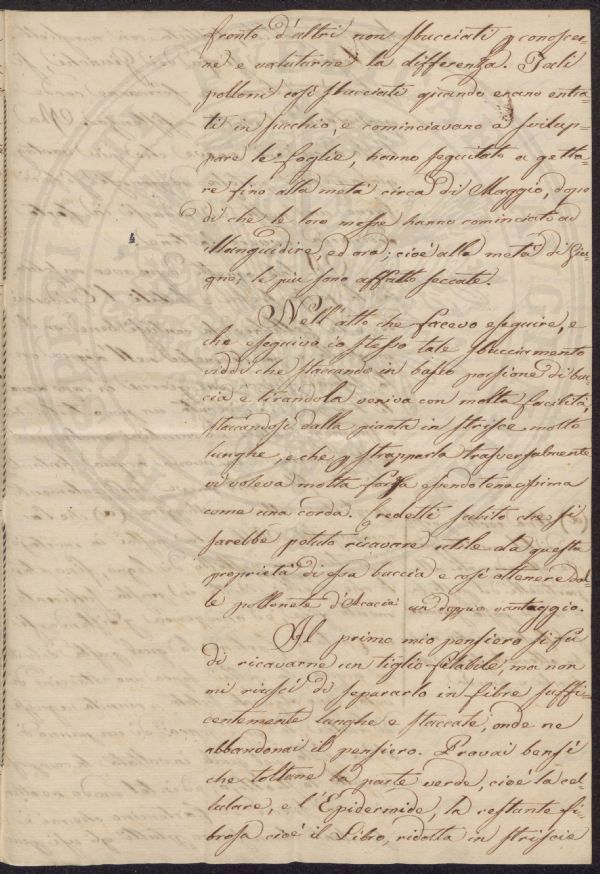 fronto d'altri non sbucciati p conoscer=
ne e valutarne la differenza. Tali
polloni così sbucciati quando erano entra=
ti in succhio, e cominciavano a svilup=
pare le foglie, hanno seguitato a getta=
re fino alla metà circa di Maggio, dopo
di che le loro messe hanno cominciato ad
illanguidire, ed ora; cioè alla metà di Giu=
gno; le più sono affatto seccate.
Nell'atto che facevo eseguire, e
che eseguiva io stesso tale sbucciamento
viddi che staccando in basso porzione di buc=
cia e tirandola veniva con molta facilità,
staccandosi dalla pianta in strisce molto
lunghe, e che p strapparla trasversalmente
vi voleva molta forza essendo tenacissima
come una corda. Credetti subito che si
sarebbe potuto ricavare utile da questa
proprietà di essa buccia e così ottenere dal=
le pollonete d'Acacia un doppio vantaggio.
Il primo mio pensiero si fù
di ricavarne un tiglio filabile, ma non
mi riuscì di separarlo in fibre suffi=
centemente lunghe e staccate, onde ne
abbandonai il pensiero. Provai bensì
che toltane la parte verde, cioè la cel=
lulare, e l'Epidermide, la restante fi=
brosa cioè il Libro, ridotta in striscie